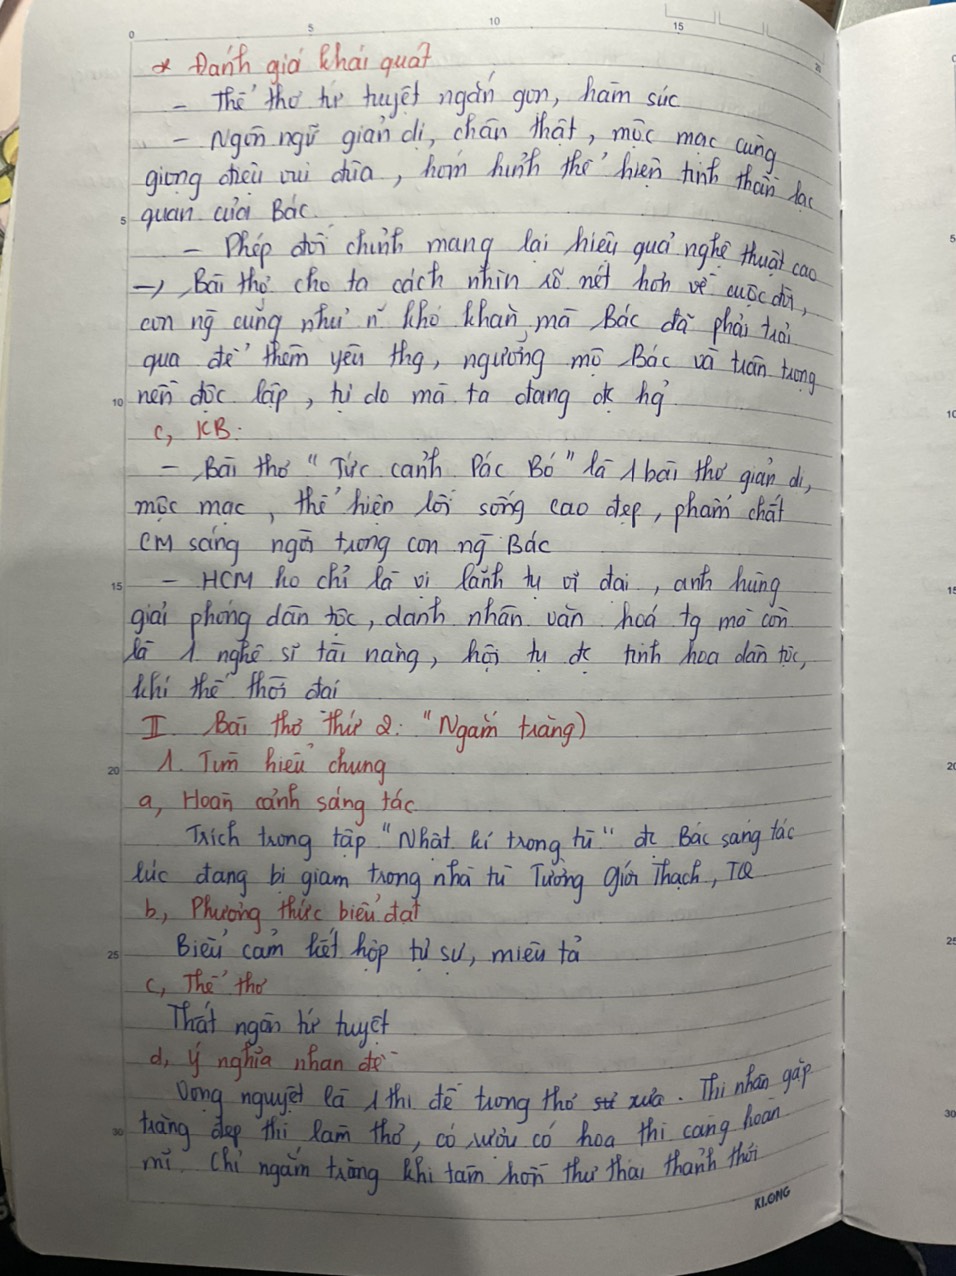 0 5 10 15
* Đánh giá khái quát
- Thể thơ tứ tuyệt ngắn gọn, hàm súc
- Ngôn ngữ giản dị, chân thật, mộc mạc cùng
giọng điệu vui đùa, hóm hỉnh thể hiện tinh thần lạc
5 quan của Bác.
- Phép đối chỉnh mang lại hiệu quả nghệ thuật cao
→ Bài thơ cho ta cách nhìn rõ nét hơn về cuộc đời,
con ng cũng như n~ khó khăn mà Bác đã phải trải
qua để thêm yêu thg, ngưỡng mộ Bác và trân trọng
10 nền độc lập, tự do mà ta đang đk hg?
c, KB:
- Bài thơ "Tức cảnh Pác Bó" là 1 bài thơ giản dị,
mộc mạc, thể hiện lối sống cao đẹp, phẩm chất
CM sáng ngời trong con ng Bác
15 - HCM ko chỉ là vị lãnh tụ vĩ đại, anh hùng
giải phóng dân tộc, danh nhân văn hoá tg mà còn
là 1 nghệ sĩ tài năng, hội tụ đc tinh hoa dân tộc,
khí thế thời đại
II. Bài thơ thứ 2: "Ngắm trăng)
20 1. Tìm hiểu chung
a, Hoàn cảnh sáng tác
Trích trong tập "Nhật kí trong tù" đc Bác sáng tác
lúc đang bị giam trong nhà tù Tưởng Giới Thạch, TQ
b, Phương thức biểu đạt
25 Biểu cảm kết hợp tự sự, miêu tả
c, Thể thơ
Thất ngôn tứ tuyệt
d, Ý nghĩa nhan đề
Vọng nguyệt là 1 thi đề trong thơ xưa. Thi nhân gặp
30 trăng đẹp thì làm thơ, có rượu có hoa thì càng hoàn
mĩ. Chỉ ngắm trăng khi tâm hồn thư thái thảnh thơi
KLONG